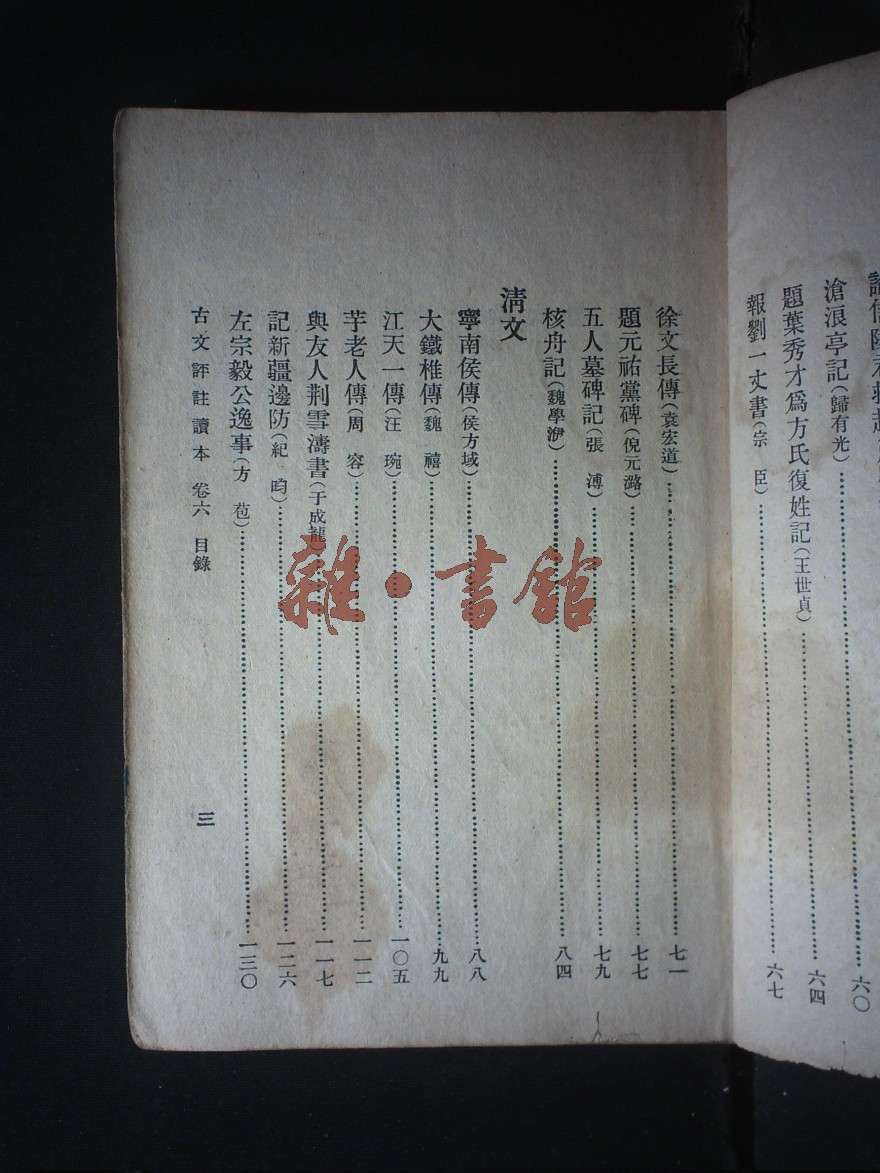 滄浪亭記(歸有光)……六〇
題葉秀才爲方氏復姓記(王世貞)……六四
報劉一丈書(宗臣)……六七
徐文長傳(袁宏道)……七一
題元祐黨碑(倪元潞)……七七
五人墓碑記(張溥)……七九
核舟記(魏學洢)……八四
淸文
寧南侯傳(侯方域)……八八
大鐵椎傳(魏禧)……九九
江天一傳(汪琬)……一〇五
芋老人傳(周容)……一一二
與友人荆雪濤書(于成龍)……一一七
記新疆邊防(紀昀)……一二六
左宗毅公逸事(方苞)……一三〇
古文評註讀本 卷六 目錄
三
雜·書館